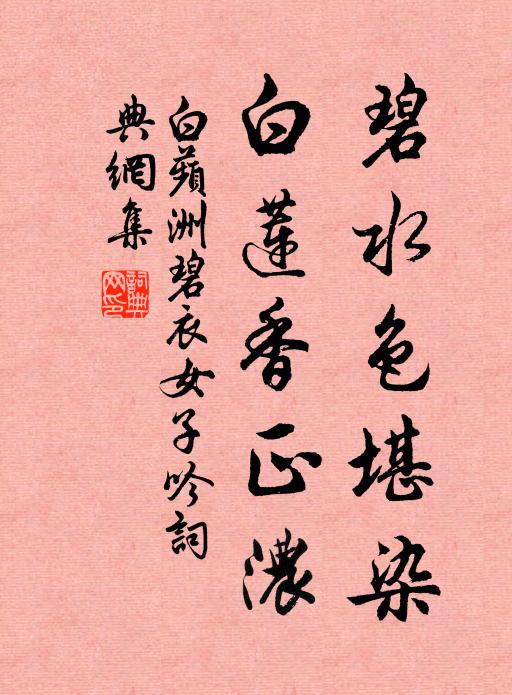 碧水色堪染
白蓮香正濃
白蘋洲碧衣女子吟詞
典網集
詞典網印